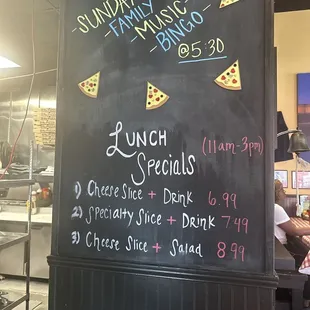 SUNDAY
FAMILY
MUSIC
BINGO
@5:30
LUNCH
(11am-3pm)
Specials
1) Cheese Slice + Drink 6.99
2) Specialty Slice + Drink 7.49
3) Cheese Slice + Salad 8.99